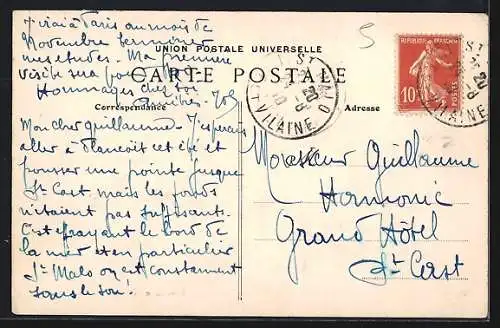 J'irai à Paris au mois de
Novembre terminer
mes études. Ma première
visite sera pour
Hommages chez toi
UNION POSTALE UNIVERSELLE
CARTE POSTALE
Correspondance
Adresse
Mon cher Guillaume - J'espérais
aller à cet été et
pousser une pointe jusque
St Cast, mais les fonds
n'étaient pas suffisants.
C'est effrayant le bord de
la mer et en particulier
St Malo on est constamment
sous le son!
5
REPUBLIQUE FRANÇAISE
10
POSTES
ST
VILAINE
Monsieur Guillaume
Harmonic
Grand Hôtel
St Cast